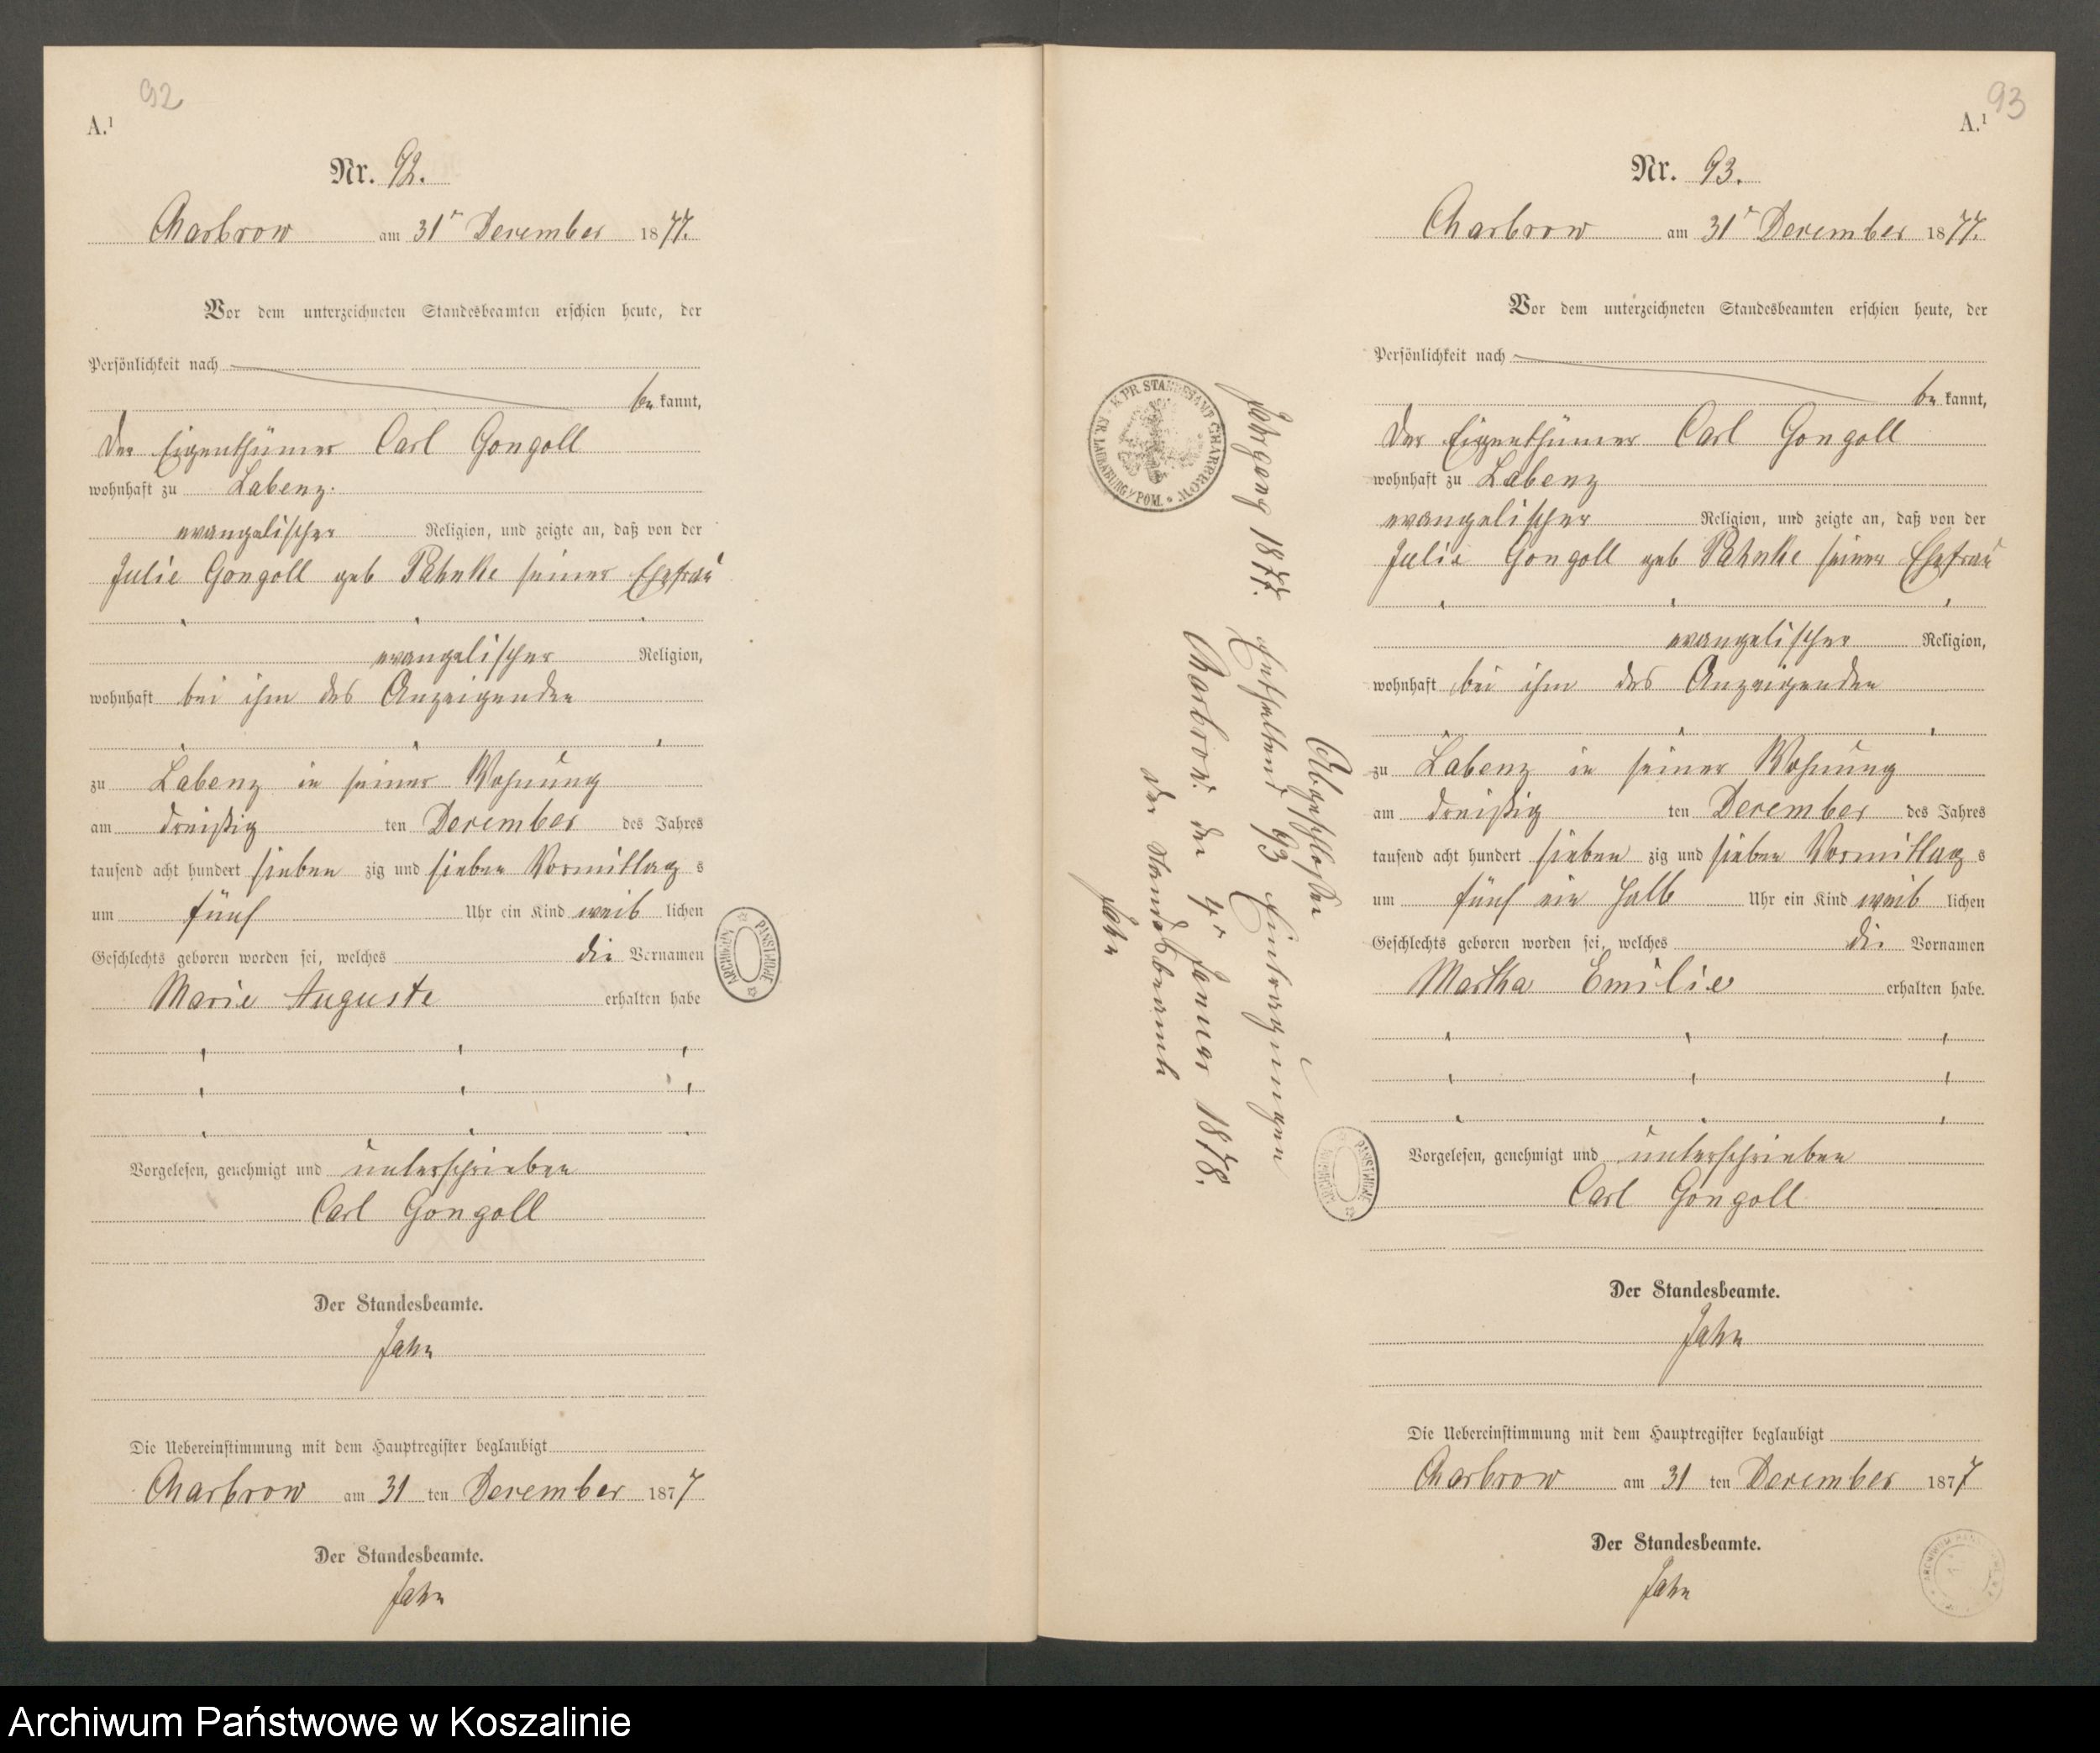 92
A.¹
Nr. 92.
Charbrow am 31ᵗ December 1877.
Vor dem unterzeichneten Standesbeamten erschien heute, der
Persönlichkeit nach
be kannt,
der Eigenthümer Carl Gongoll
wohnhaft zu Labenz.
evangelischer Religion, und zeigte an, daß von der
Julie Gongoll geb Pahnke seiner Ehefrau
evangelischer Religion,
wohnhaft bei ihm des Anzeigenden
zu Labenz in seiner Wohnung
am dreißig ten December des Jahres
tausend acht hundert sieben zig und sieben Vormittag s
um fünf Uhr ein Kind weib lichen
Geschlechts geboren worden sei, welches die Vornamen
Marie Auguste erhalten habe
Vorgelesen, genehmigt und unterschrieben
Carl Gongoll
Der Standesbeamte.
Jahn
Die Uebereinstimmung mit dem Hauptregister beglaubigt
Charbrow am 31 ten December 1877
Der Standesbeamte.
Jahn
ARCHIWUM PAŃSTWOWE
K. PR. STANDESAMT CHARBROW
KR. LAUENBURG / POM.
Abgeschlossen
Jahrgang 1877. Enthaltend 93 Eintragungen
Charbrow den 4ᵗ Januar 1878.
der Standesbeamte
Jahn
93
A.¹
Nr. 93.
Charbrow am 31ᵗ December 1877.
Vor dem unterzeichneten Standesbeamten erschien heute, der
Persönlichkeit nach
be kannt,
der Eigenthümer Carl Gongoll
wohnhaft zu Labenz
evangelischer Religion, und zeigte an, daß von der
Julie Gongoll geb Pahnke seiner Ehefrau
evangelischer Religion,
wohnhaft bei ihm des Anzeigenden
zu Labenz in seiner Wohnung
am dreißig ten December des Jahres
tausend acht hundert sieben zig und sieben Vormittag s
um fünf ein halb Uhr ein Kind weib lichen
Geschlechts geboren worden sei, welches die Vornamen
Martha Emilie erhalten habe.
Vorgelesen, genehmigt und unterschrieben
Carl Gongoll
Der Standesbeamte.
Jahn
Die Uebereinstimmung mit dem Hauptregister beglaubigt
Charbrow am 31 ten December 1877
Der Standesbeamte.
Jahn
Archiwum Państwowe w Koszalinie